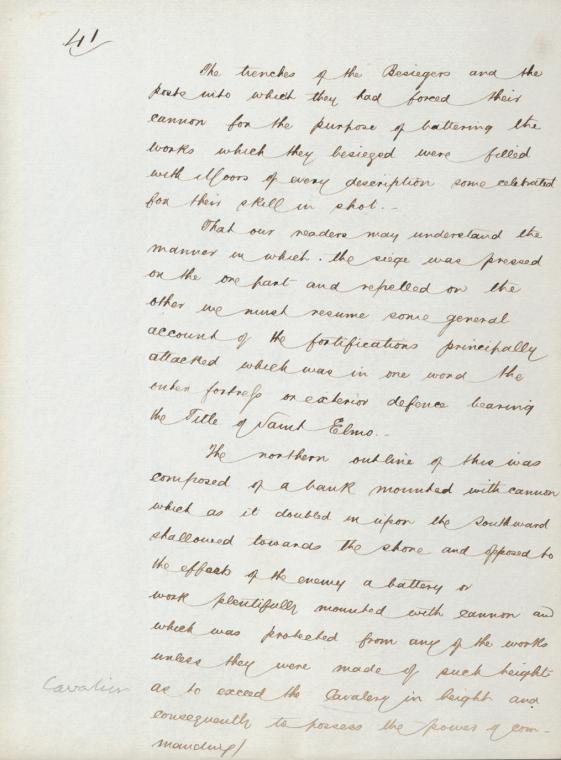 41
The trenches of the Besiegers and the
posts into which they had forced their
cannon for the purpose of battering the
works which they besieged were filled
with Moors of every description some celebrated
for their skill in shot. -
That our readers may understand the
manner in which the siege was pressed
on the one part and repelled on the
other we must resume some general
account of the fortifications principally
attacked which was in one word the
outer fortress or exterior defence bearing
the Title of Saint Elmo. -
The northern outline of this was
composed of a bank mounted with cannon
which as it doubled in upon the Southward
shallowed towards the shore and opposed to
the effects of the enemy a battery or
work plentifully mounted with cannon and
which was protected from any of the works
unless they were made of such height
Cavalier
as to exceed the Cavalery in height and
consequently to possess the power of com-
manding/